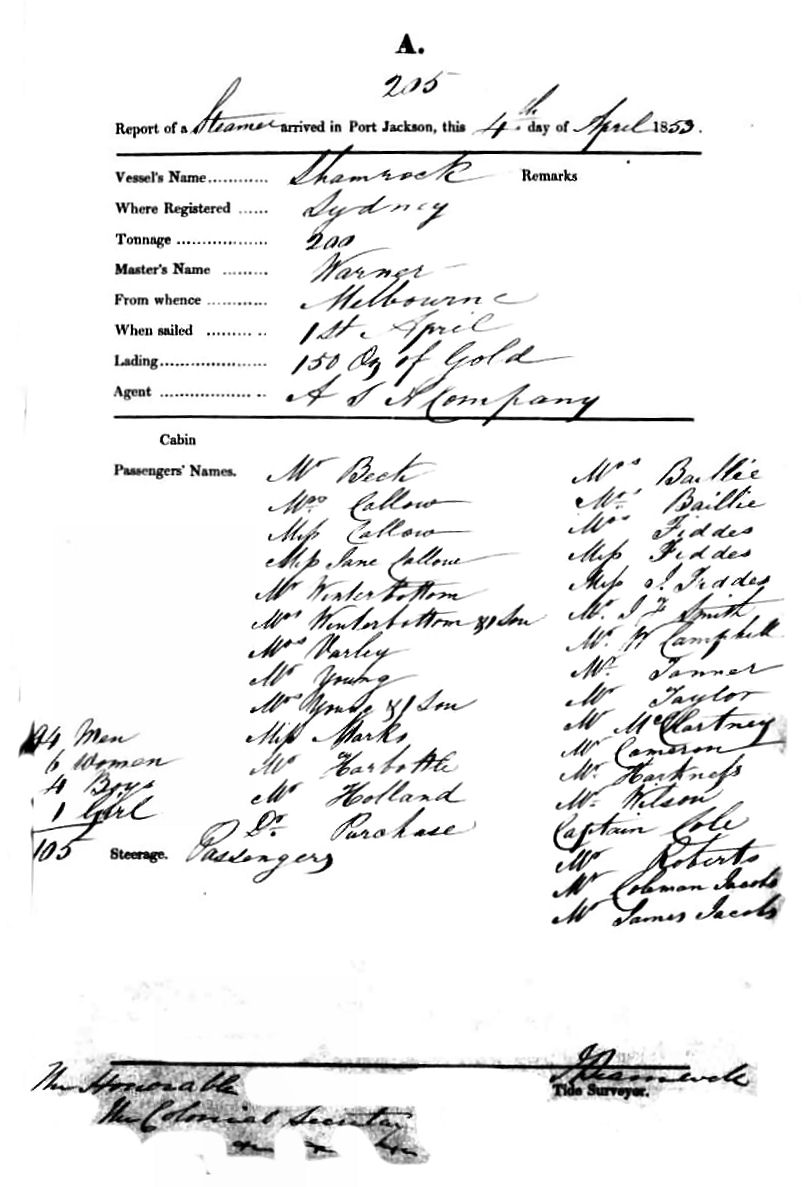 A.
205
Report of a Steamer arrived in Port Jackson, this 4th day of April 1853.
Vessel's Name............ Shamrock Remarks
Where Registered ...... Sydney
Tonnage .................. 200
Master's Name ......... Warner
From whence ............ Melbourne
When sailed ......... .. 1st April
Lading..................... 150 Oz of Gold
Agent .................. .. A S N Company
Cabin
Passengers' Names.
Mr Beck
Mrs Callow
Miss Callow
Miss Jane Callow
Mr Winterbottom
Mrs Winterbottom & 1 Son
Mrs Varley
Mr Young
Mrs Young & 1 Son
Miss Marks
Mr Harbottle
Mr Holland
Dr. Purchase
Mrs Baillie
Mrs Baillie
Mrs Fiddes
Miss Fiddes
Miss J. Fiddes
Mr. J F Smith
Mr. W Campbell
Mr. Tanner
Mr Taylor
Mr McCartney
Mr Cameron
Mr. Harkness
Mr. Wilson
Captain Cole
Mr Roberts
Mr Colman Jacobs
Mr James Jacobs
94 Men
6 Women
4 Boys
1 Girl
105 Steerage. Passengers
The Honorable
The Colonial Secretary
Tide Surveyor.